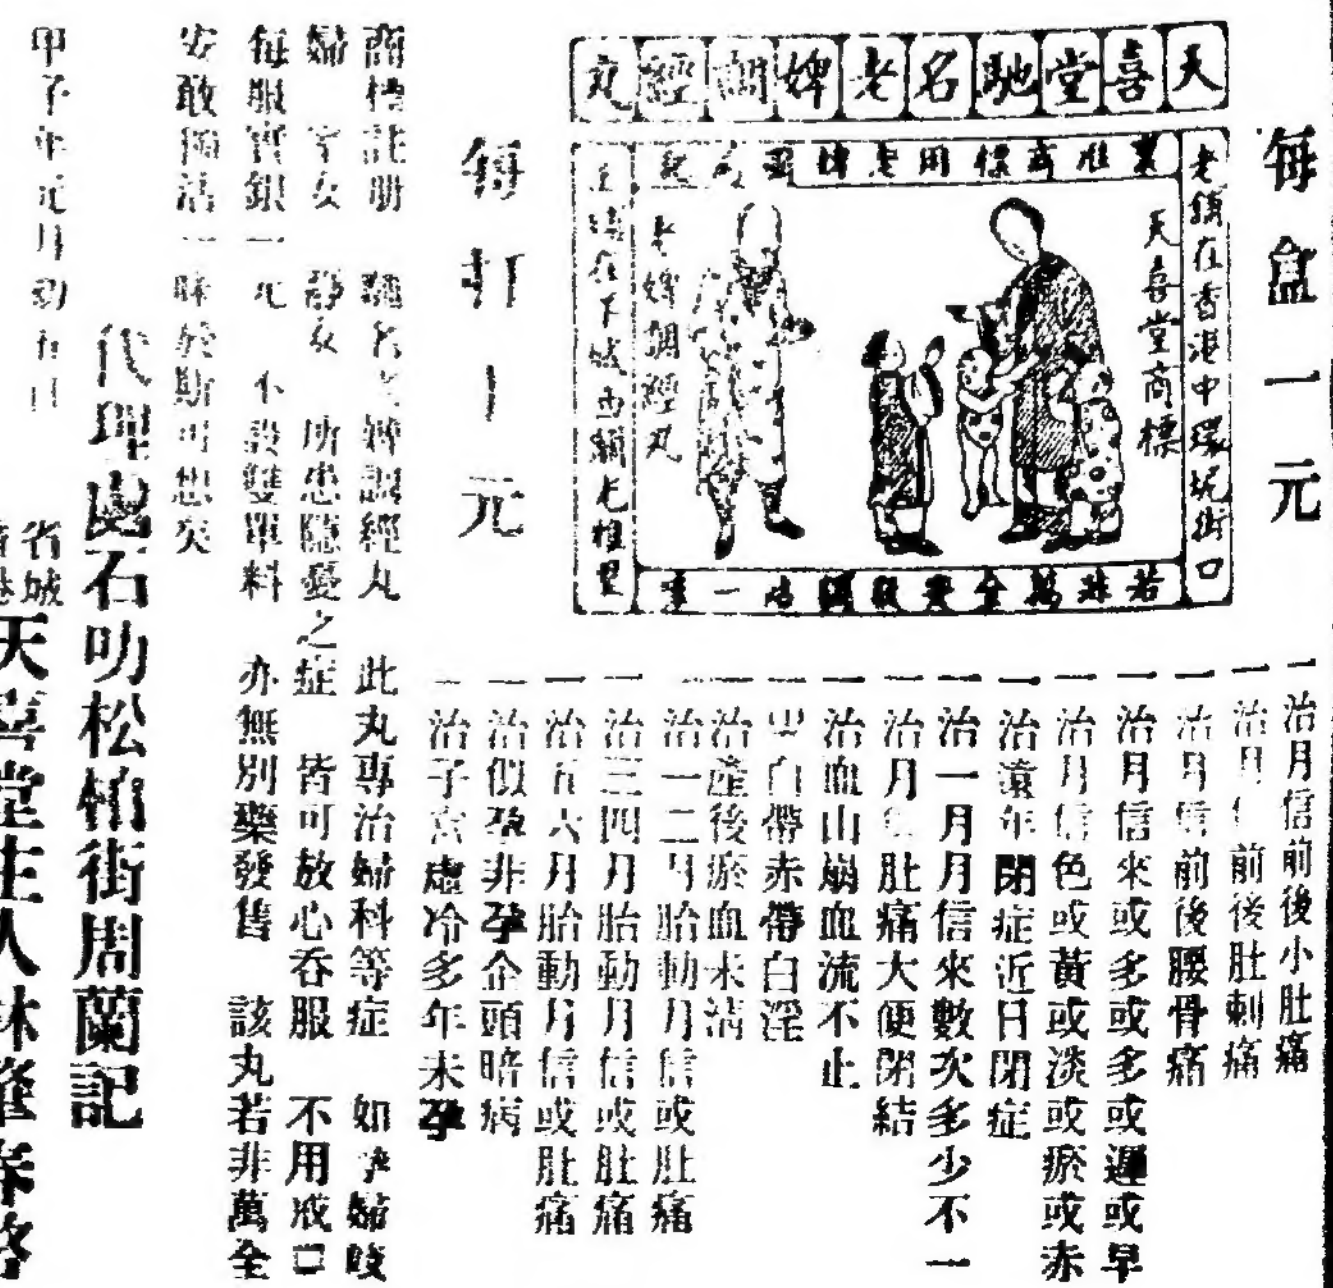 每盒一元
天喜堂馳名老婢調經丸
老鋪在香港中環坑街口
天喜堂商標
老婢調經丸
若非萬全安敢獨沽一味
每打十元
一治月信前後小肚痛
一治月信前後肚刺痛
一治月信前後腰骨痛
一治月信來或多或多或遲或早
一治月信色或黃或淡或瘀或赤
一治遠年閉症近日閉症
一治一月月信來數次多少不一
一治月 肚痛大便閉結
一治血山崩血流不止
一 白帶赤帶白淫
一治產後瘀血未清
一治一二月胎動月信或肚痛
一治三四月胎動月信或肚痛
一治五六月胎動月信或肚痛
一治似孕非孕企頭暗病
一治子宮虛冷多年未孕
商標註册 馳名老婢調經丸 此丸專治婦科等症 如孕婦
婦 室女 靜女 所患隱憂之症 皆可放心吞服 不用戒口
每服實銀一元 不設雙單料 亦無別藥發售 該丸若非萬全
安敢獨沽一味於斯可想矣
代理處石叻松柏街周蘭記
甲子年元月初五日
省城
香港
天喜堂主人林肇春啓